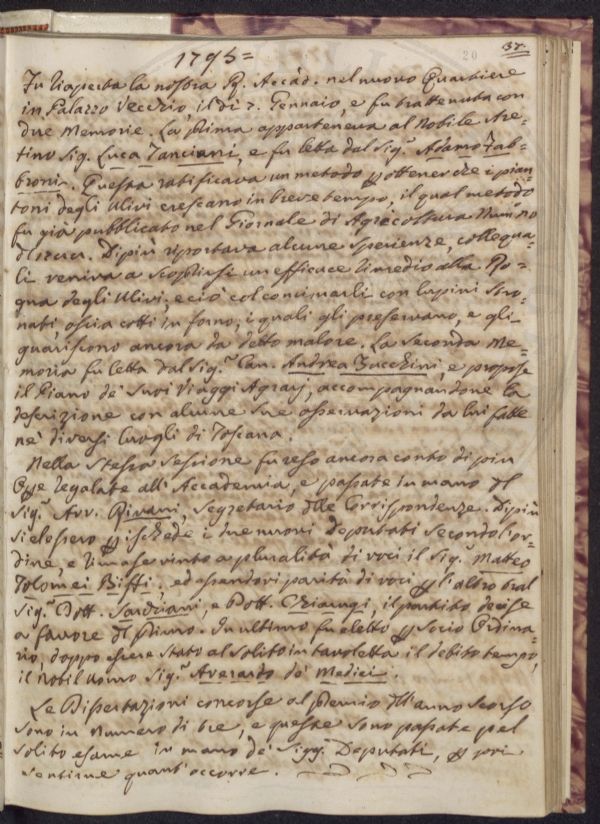 20 37.
1795=
Fu riaperta la nostra R. Accad. nel nuovo Quartiere
in Palazzo Vecchio il dì 7. Gennaio, e fu trattenuta con
due Memorie. La prima apparteneva al Nobile Are-
tino Sig. Luca Tanciani, e fu letta dal Sig.r Adamo Fab-
broni. Questa ratificava un metodo p ottener che i pian-
toni degli Ulivi crescano in breve tempo, il qual metodo
fu già pubblicato nel Giornale di Agricoltura Numero
Di più riportava alcune sperienze, colle qua-
li veniva a scoprirsi un efficace rimedio alla Ro-
gna degli Ulivi, e ciò col concimarli con lupini
ossia cotti in forno, i quali gli preservano, e gli
guariscono ancora da detto malore. La seconda Me-
moria fu letta dal Sig.r Can. Andrea Zucchini, e propose
il Piano de' suoi Viaggi Agrarj, accompagnandone la
descrizione con alcune sue osservazioni da lui fatte
ne' diversi luoghi di Toscana.
Nella stessa sessione fu reso ancora conto di più
Opere regalate all' Accademia, e passate in mano del
Sig.r Avv. Rivani, Segretario delle Corrispondenze. Di più
si elessero p ischede i due nuovi Deputati secondo l'or-
dine, e rimase vinto a pluralità di voci il Sig.r Matteo
Tolomei Biffi, ed essendovi parità di voci p l'altro tral
Sig.r Dott. Sarchiani, e Dott. Chiarugi, il partito decise
a favore del primo. In ultimo fu eletto p Socio Ordina-
rio, doppo essere stato al solito in tavoletta il debito tempo,
il Nobil Uomo Sig.r Averardo de' Medici.
Le Dissertazioni concorse al premio dell' anno scorso
sono in numero di tre, e queste sono passate pel
solito esame in mano de' Sigg.ri Deputati, p poi
sentirne quant' occorre.